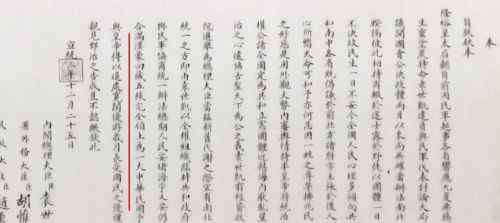 奉
旨朕欽奉
隆裕皇太后懿旨前因民軍起事各省響應九夏沸騰
生靈塗炭特命袁世凱遣員與民軍代表討論大局
議開國會公決政體兩月以來尚無確當辦法南北
暌隔彼此相持商輟於途士露於野徒以國體一日
不決故民生一日不安今全國人民心理多傾向共
和南中各省既倡議於前北方諸將亦主張於後人
心所嚮天命可知予亦何忍因一姓之尊榮拂兆民
之好惡是用外觀大勢內審輿情特率皇帝將統治
權公諸全國定為共和立憲國體近慰海內厭亂望
治之心遠協古聖天下為公之義袁世凱前經資政
院選舉為總理大臣當茲新舊代謝之際宜有南北
統一之方即由袁世凱以全權組織臨時共和政府
與民軍協商統一辦法總期人民安堵海宇乂安仍
合滿漢蒙回藏五族完全領土為一大中華民國予
與皇帝得以退處寬閒優游歲月長受國民之優禮
親見郅治之告成豈不懿歟欽此
宣統年十二月二十五日
內閣總理大臣臣袁世
署外務大臣臣胡惟
民政大臣臣趙